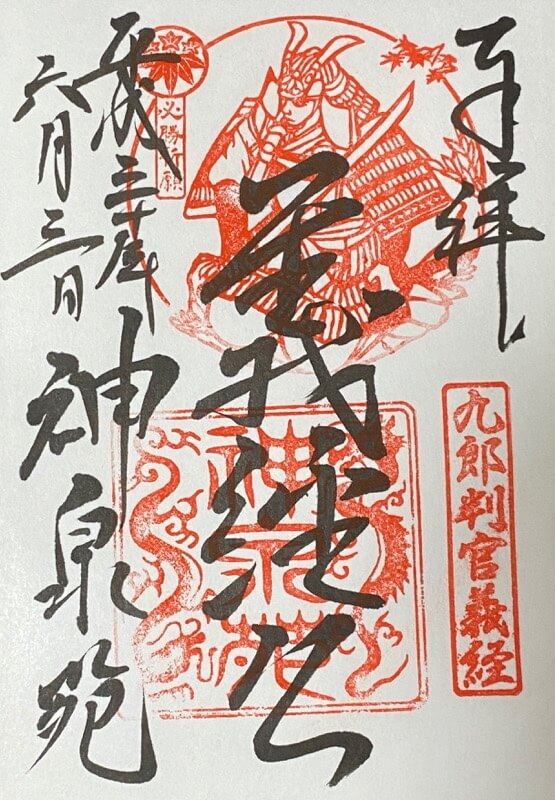 奉拝
九郎判官義経
義経公
必勝祈願
神泉苑
平成三十年
六月三日
神泉苑